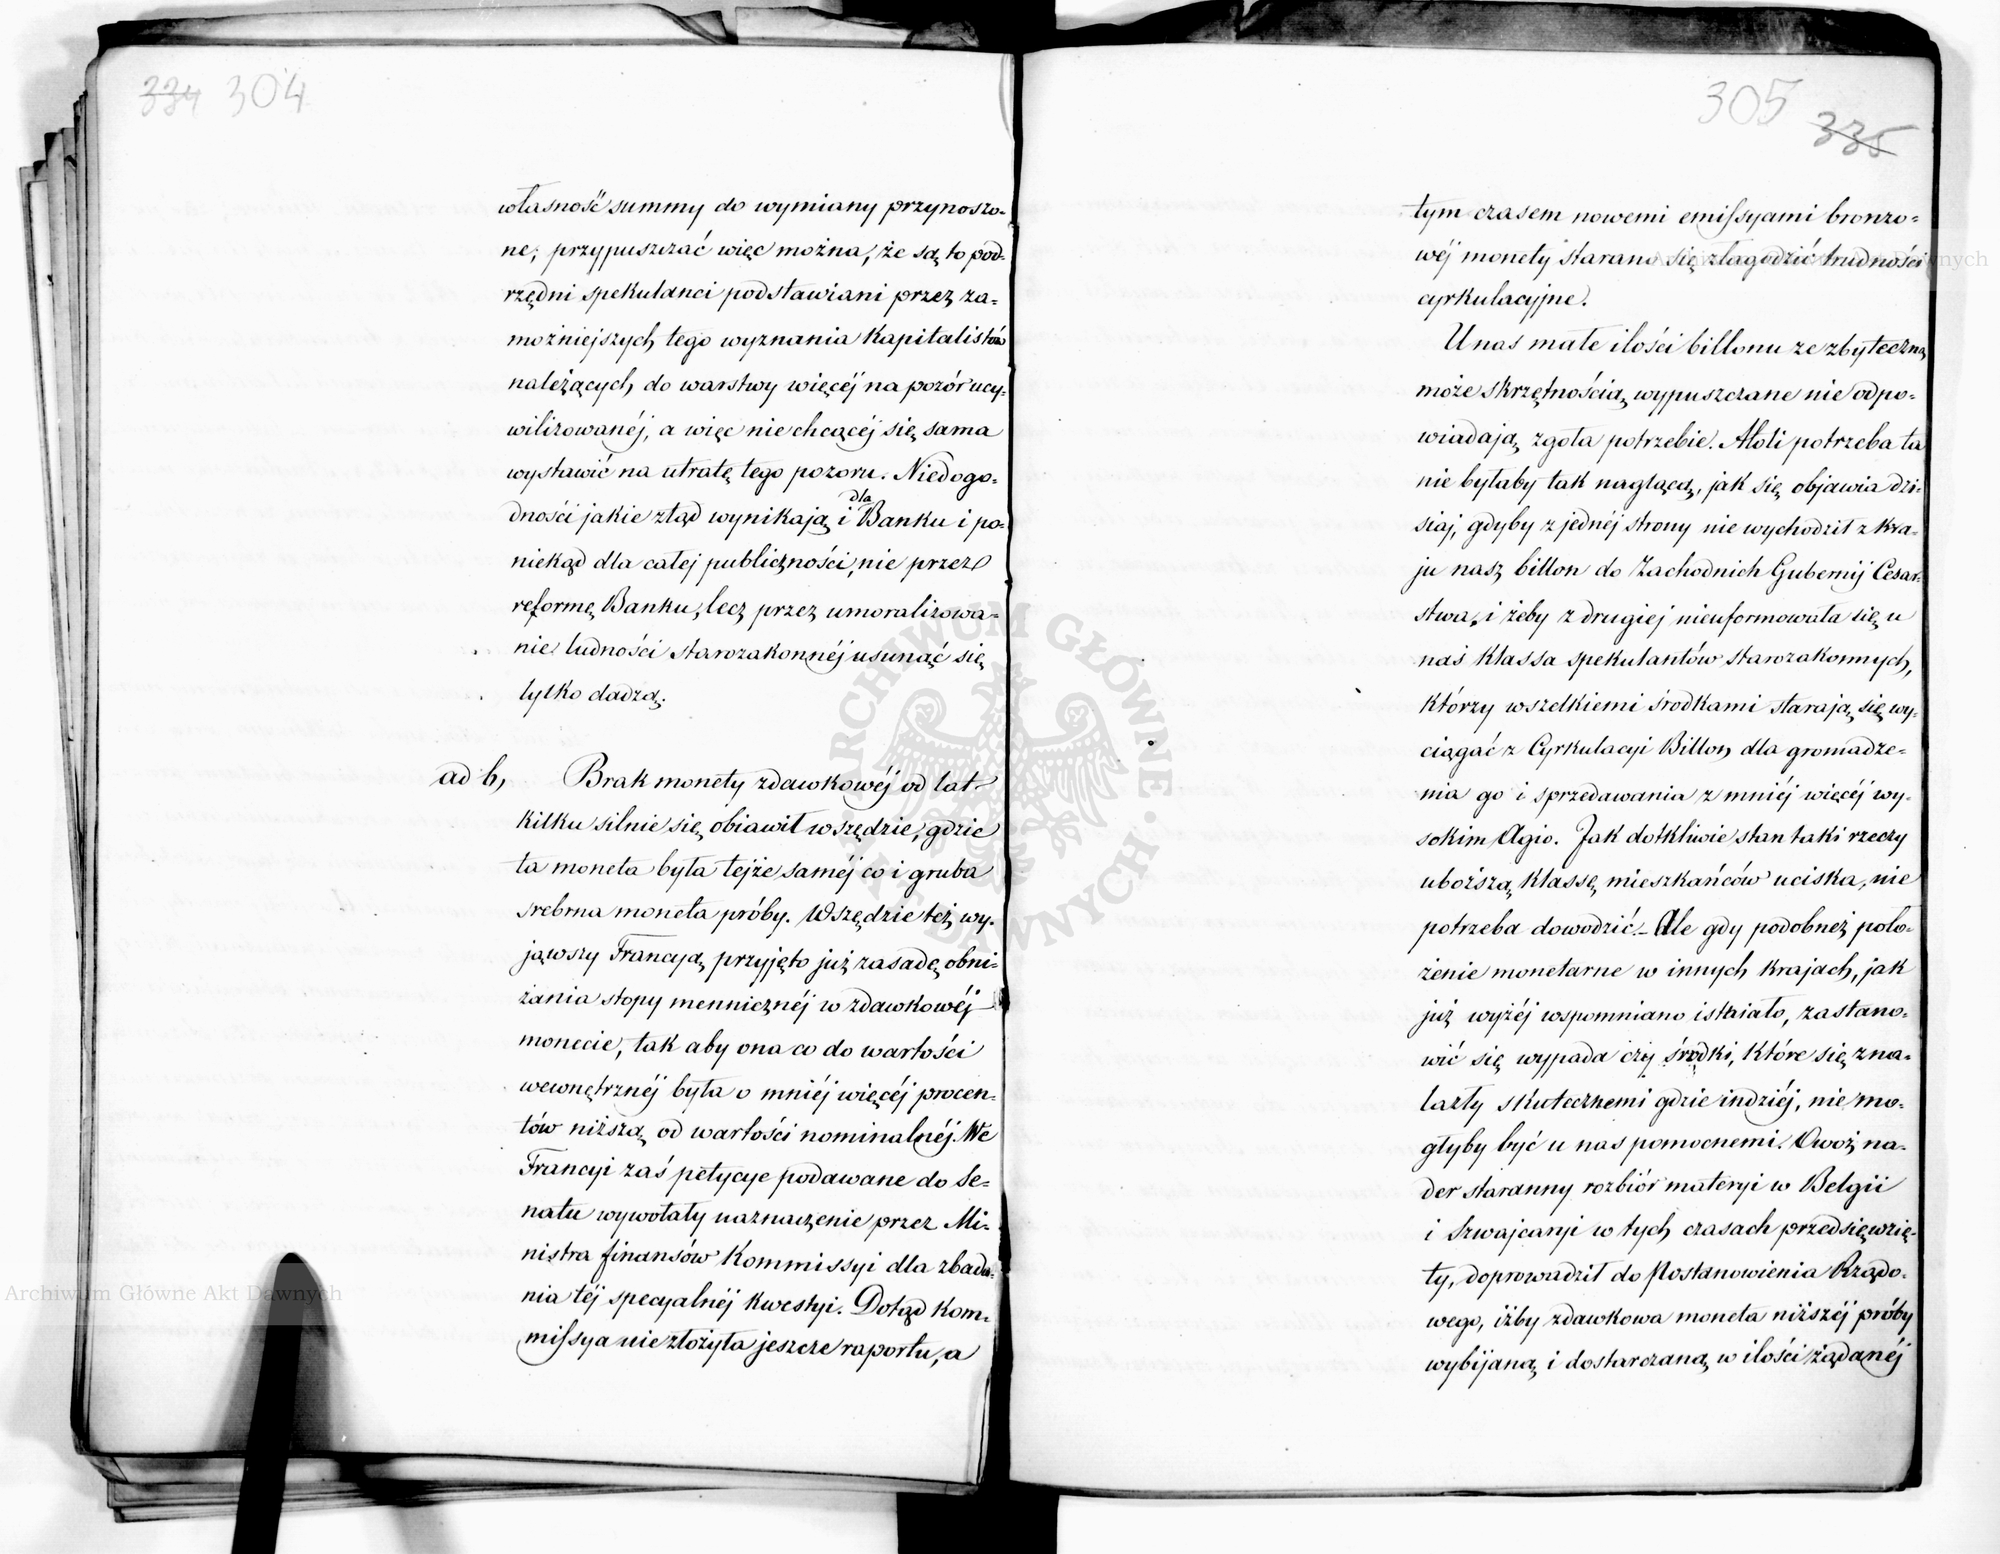 334 304
własność summy do wymiany przynoszo-
ne; przypuszczać więc można, że są to pod-
rzędni spekulanci podstawiani przez za-
możniejszych tego wyznania Kapitalistów
należących do warstwy więcéj na pozór ucy-
wilizowanéj, a więc nie chcącéj się sama
wystawić na utratę tego pozoru. Niedogo-
dności jakie ztąd wynikają i dla Banku i po-
niekąd dla całej publiczności, nie przez
reformę Banku, lecz przez umoralizowa-
nie ludności starozakonnéj usunąć się
tylko dadzą.
ad b, Brak monety zdawkowéj od lat
kilku silnie się obiawił wszędzie, gdzie
ta moneta była tejże saméj co i gruba
srebrna moneta próby. Wszędzie też wy-
jąwszy Francyą przyjęto już zasadę obni-
żania stopy mennicznéj w zdawkowéj
monecie, tak aby ona co do wartości
wewnętrznéj była o mniéj więcéj procen-
tów niższą od wartości nominalnéj. We
Francyi zaś petycye podawane do Se-
natu wywołały naznaczenie przez Mi-
nistra finansów Kommissyi dla zbada-
nia téj specyalnéj kwestyi. Dotąd Kom-
missya nie złożyła jeszcze raportu, a
305 335
tym czasem nowemi emissyami bronzo-
wéj monety starano się złagodzić trudności
cyrkulacyjne.
U nas małe ilości billonu ze zbyteczną
może skrzętnością wypuszczane nie odpo-
wiadają zgoła potrzebie. Atoli potrzeba ta
nie byłaby tak naglącą, jak się objawia dzi-
siaj, gdyby z jednéj strony nie wychodził z kra-
ju nasz billon do Zachodnich Gubernij Cesar-
stwa, i żeby z drugiej nieuformowała się u
nas klassa spekulantów starozakonnych,
którzy wszelkiemi środkami starają się wy-
ciągać z Cyrkulacyi Billon dla gromadze-
nia go i sprzedawania z mniéj więcéj wy-
sokim Agio. Jak dotkliwie stan taki rzeczy
uboższą klassę mieszkańców uciska, nie
potrzeba dowodzić. – Ale gdy podobneż poło-
żenie monetarne w innych krajach, jak
już wyżéj wspomniano istniało, zastano-
wić się wypada czy środki, które się zna-
lazły skutecznemi gdzie indziéj, nie mo-
głyby być u nas pomocnemi. Owoż na-
der staranny rozbiór materyi w Belgii
i Szwajcaryi w tych czasach przedsięwzię-
ty, doprowadził do Postanowienia Rządo-
wego, iżby zdawkowa moneta niższéj próby
wybijaną i dostarczaną w ilości żądanéj
ARCHIWUM GŁÓWNE AKT DAWNYCH
Archiwum Główne Akt Dawnych